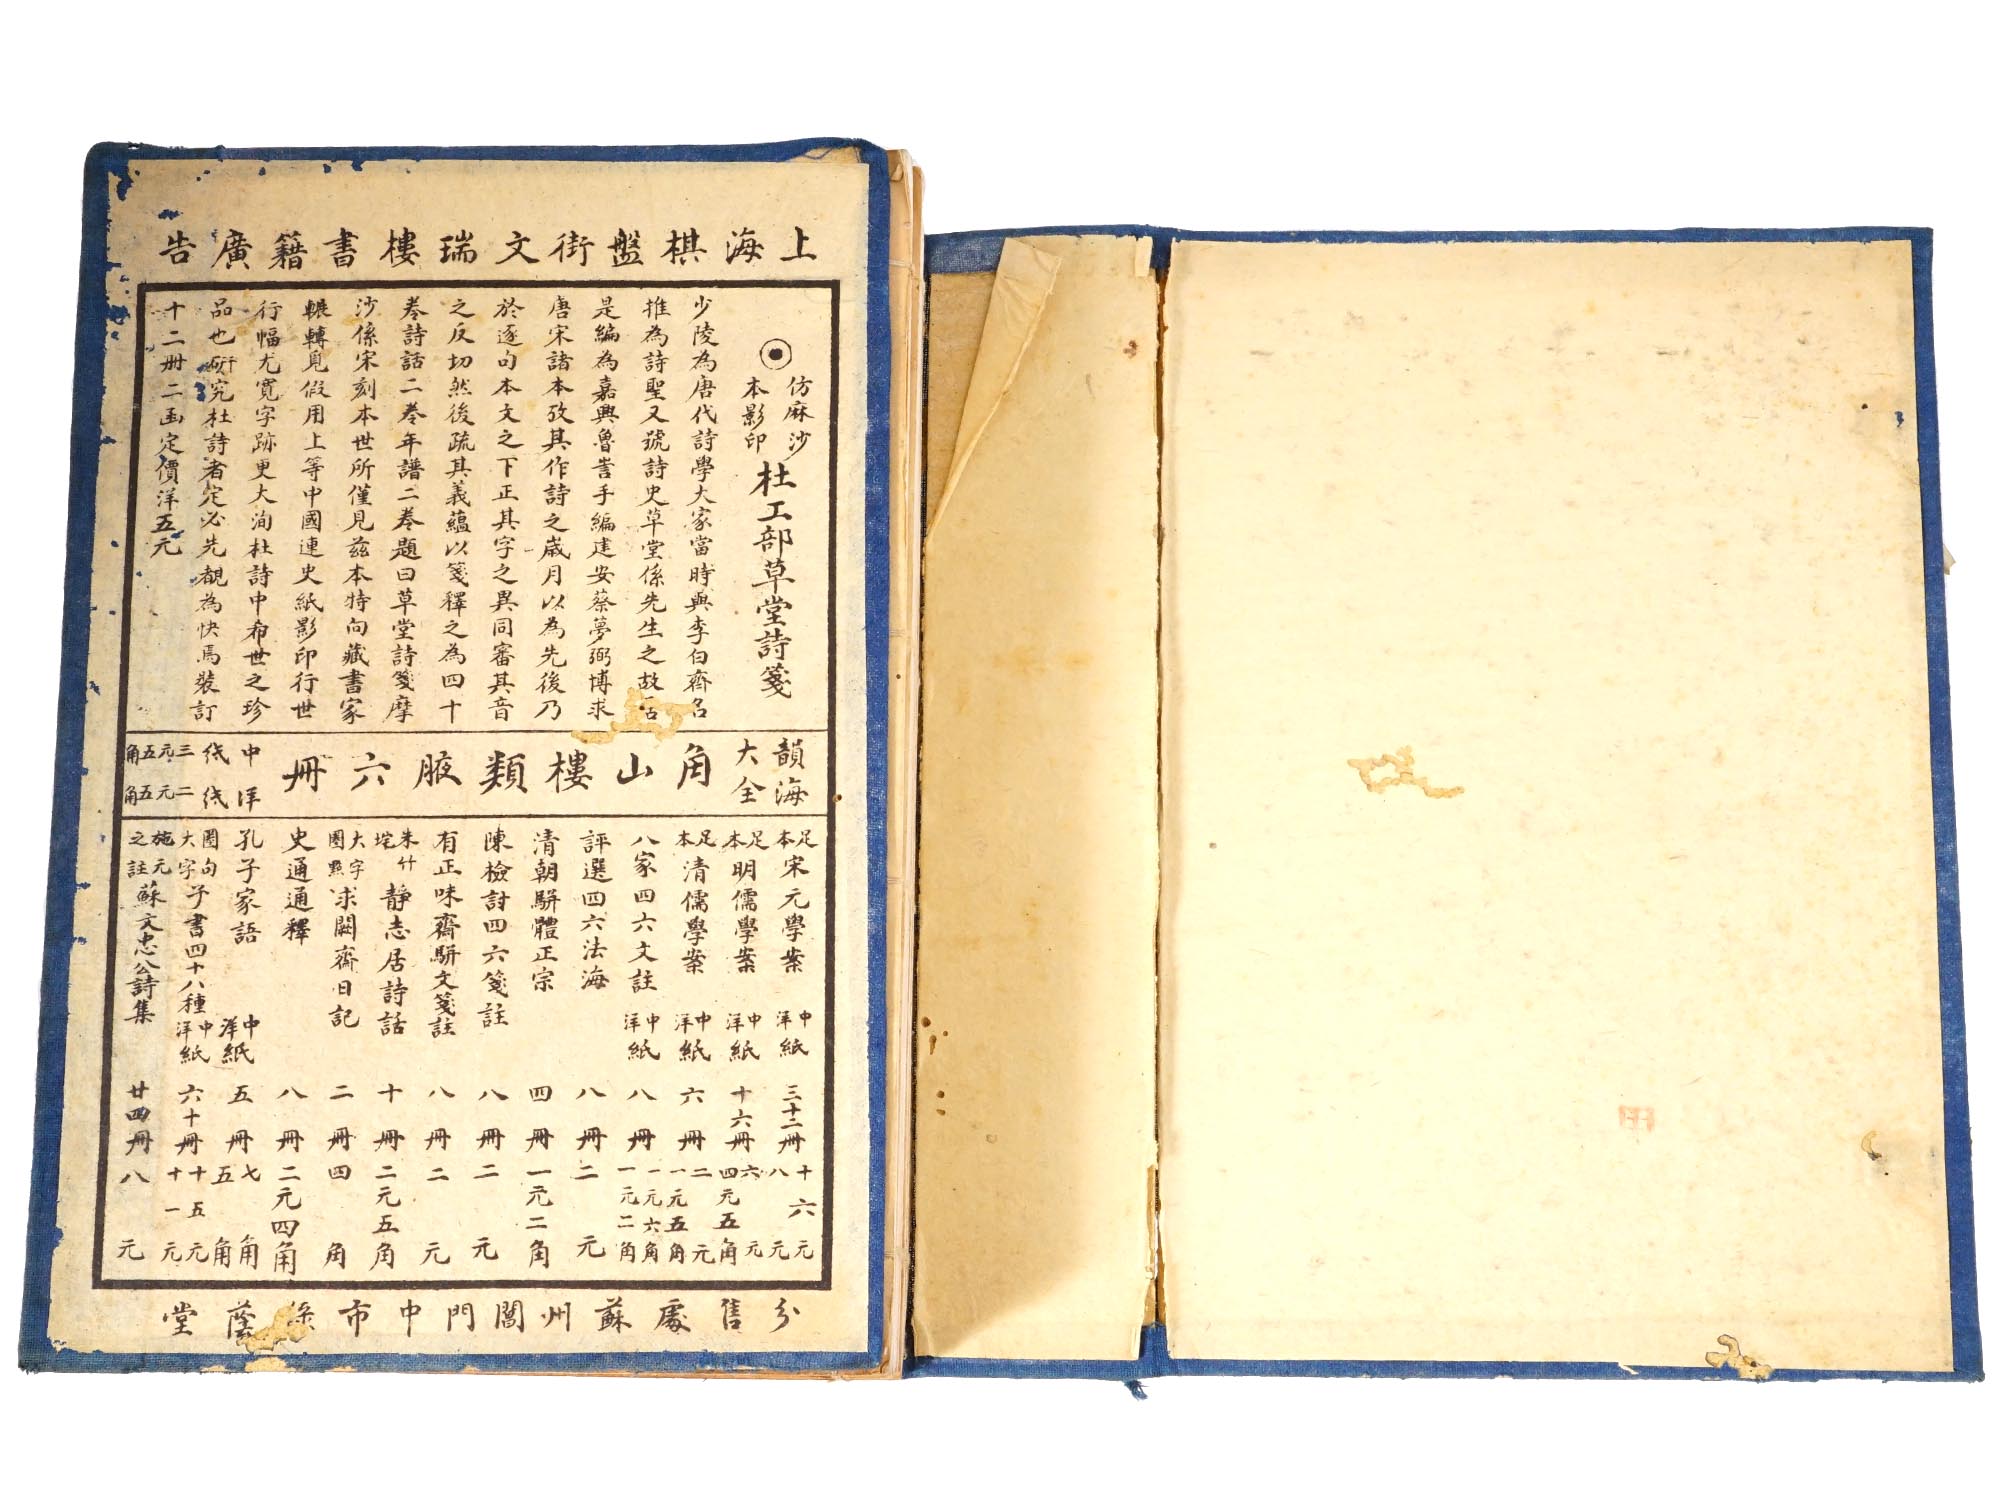 上海棋盤街文瑞樓書籍廣告
仿麻沙本影印 杜工部草堂詩箋
少陵為唐代詩學大家當時與李白齊名
推為詩聖又號詩史草堂係先生之故居
是編為嘉興魯訔手編建安蔡夢弼博求
唐宋諸本攷其作詩之歲月以為先後乃
於逐句本文之下正其字之異同審其音
之反切然後疏其義蘊以箋釋之為四十
卷詩話二卷年譜二卷題曰草堂詩箋摩
沙係宋刻本世所僅見茲本特向藏書家
輾轉覓假用上等中國連史紙影印行世
行幅尤寬字跡更大洵杜詩中希世之珍
品也研究杜詩者定必先覩為快焉裝訂
十二冊二函定價洋五元
韻海大全 角山樓類腋六冊 中洋 紙紙 三元五角 二元五角
足本宋元學案 中洋紙 三十二冊 十六元 八元
足本明儒學案 中洋紙 十六冊 六元 四元五角
足本清儒學案 中洋紙 六冊 二元 一元五角
八家四六文註 中洋紙 八冊 一元六角 一元二角
評選四六法海 八冊 二元
清朝駢體正宗 四冊 一元二角
陳檢討四六箋註 八冊 二元
有正味齋駢文箋註 八冊 二元
朱竹垞靜志居詩話 十冊 二元五角
大字圈點求闕齋日記 二冊 四角
史通通釋 八冊 二元四角
孔子家語 中洋紙 五冊 七角 五角
圈句大字子書四十八種 中洋紙 六十冊 十五元 十一元
施元之註蘇文忠公詩集 廿四冊 八元
分售處蘇州閶門中市綠蔭堂